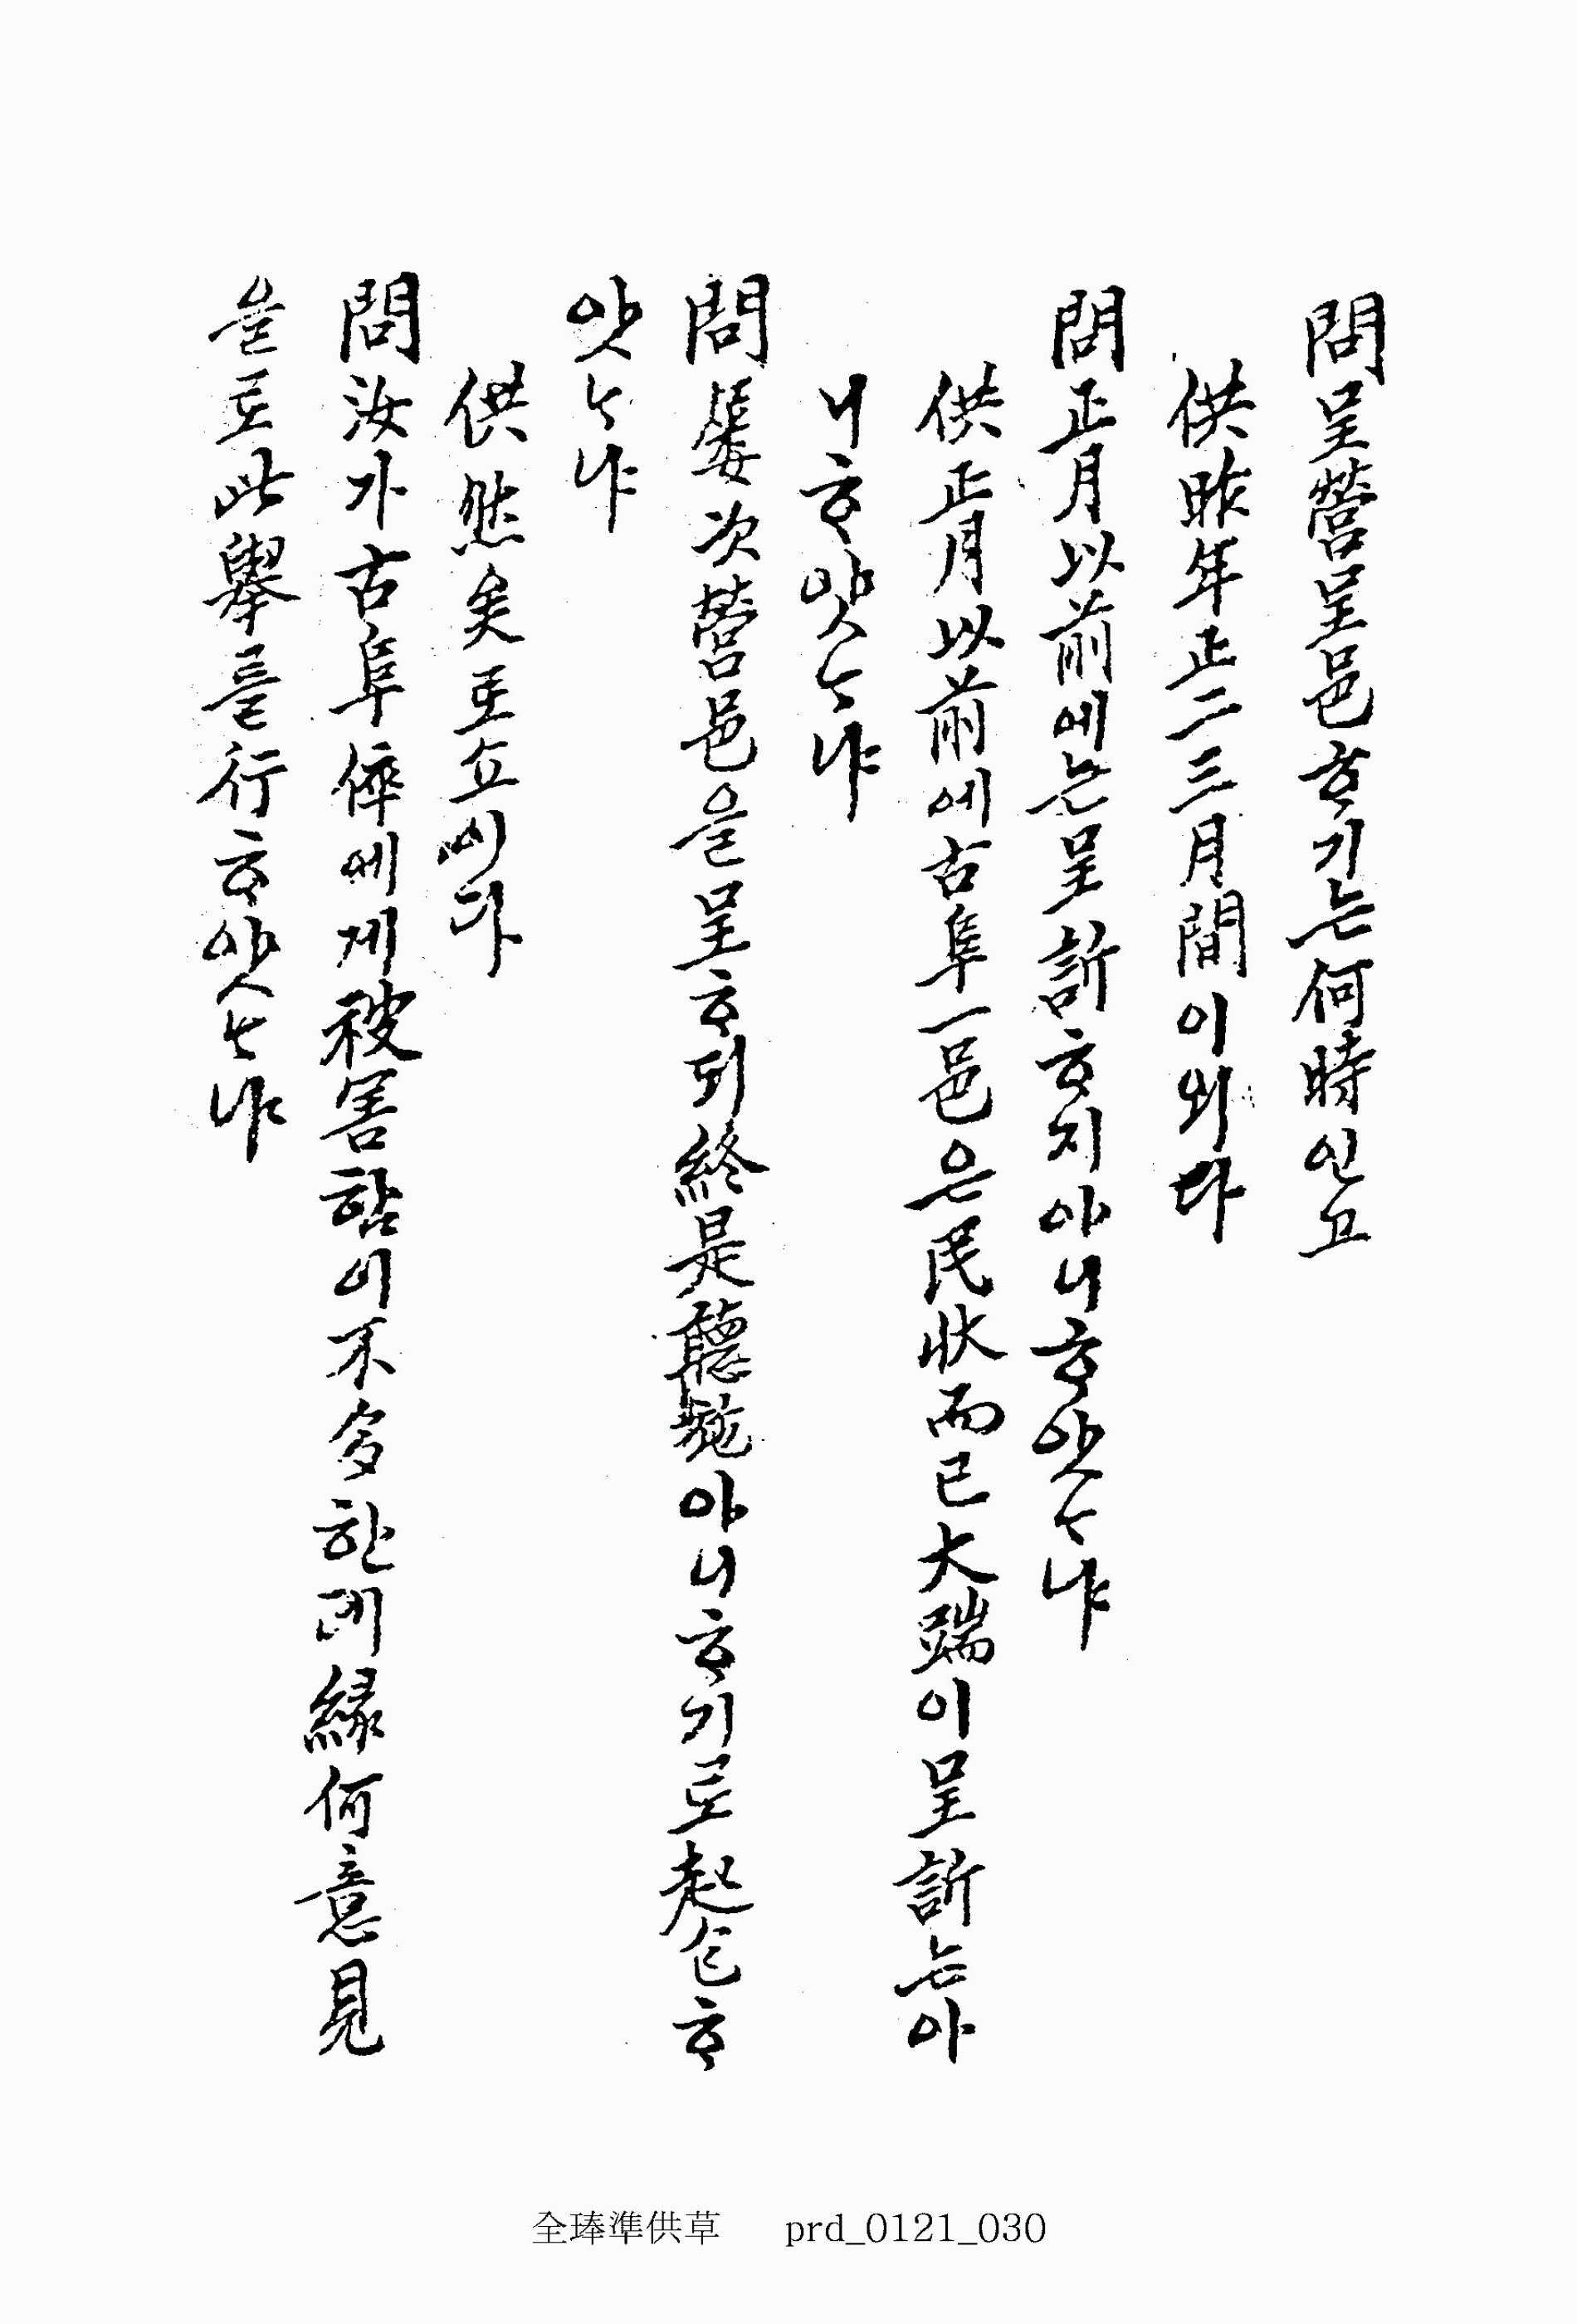 問呈營呈邑ᄒᆞ기ᄂᆞᆫ何時인고
供昨年正二三月間이외다
問正月以前에ᄂᆞᆫ呈訴ᄒᆞ지아니ᄒᆞ얏ᄂᆞ냐
供正月以前에古阜一邑은民狀而已大端이呈訴ᄂᆞᆫ아
니ᄒᆞ얏ᄂᆞ냐
問屢次營邑을呈ᄒᆞ되終是聽施아니ᄒᆞ기로起包ᄒᆞ
얏ᄂᆞ냐
供然矣로소이다
問汝가古阜倅에게被害함이不多한데緣何意見
을로此擧를行ᄒᆞ얏ᄂᆞ냐
全琫準供草 prd_0121_030